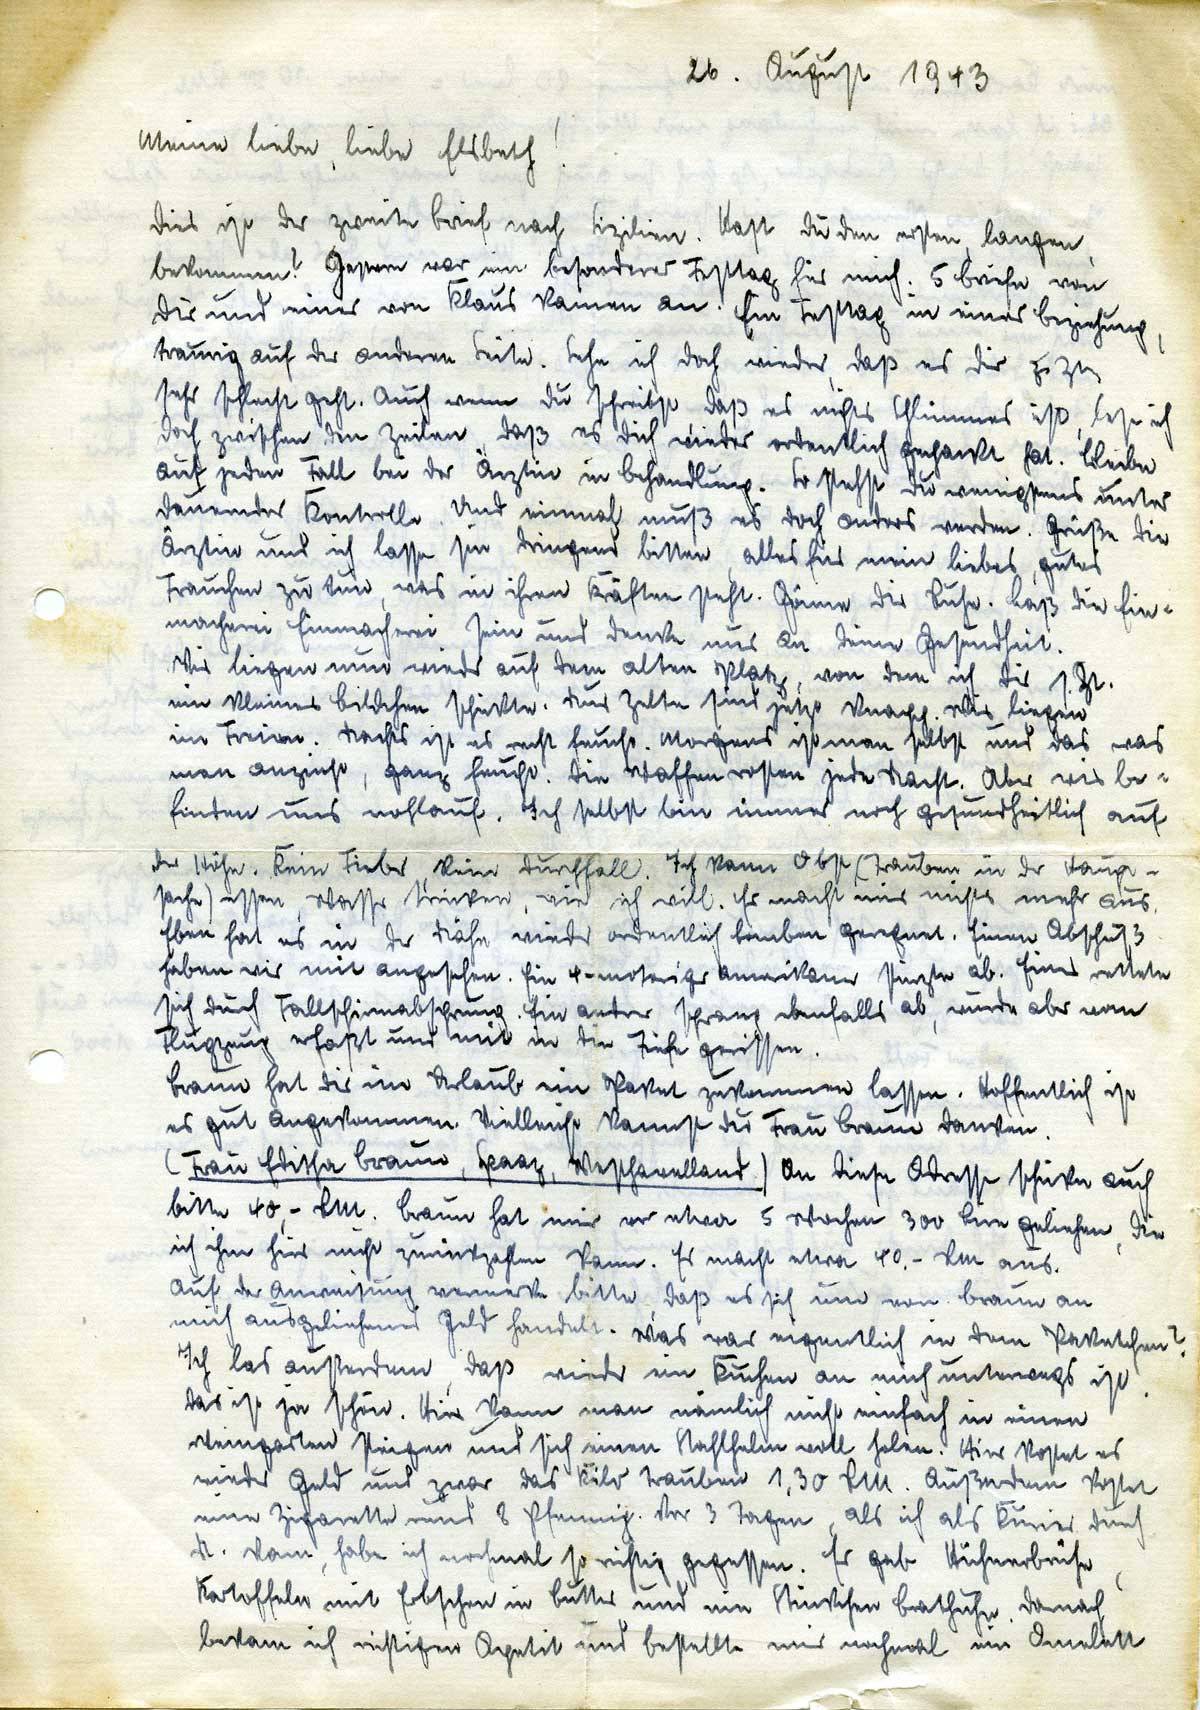 26. August 1943
Meine liebe, liebe Elsbeth!
Dies ist der zweite Brief nach Sizilien. Hast du den ersten, langen,
bekommen? Gestern war ein besonderer Festtag für mich. 5 Briefe von
Dir und einer von Klaus kamen an. Ein Festtag in einer Beziehung,
traurig auf der anderen Seite. Sehe ich doch wieder, daß es dir z. Zt.
sehr schlecht geht. Auch wenn du schreibst daß es nichts Schlimmes ist, lese ich
doch zwischen den Zeilen, daß es dich wieder ordentlich gepackt hat. Bleibe
auf jeden Fall bei der Ärztin in Behandlung. So stehst du wenigstens unter
dauernder Kontrolle. Und einmal muß es doch anders werden. Grüße die
Ärztin und ich lasse sie dringend bitten, alles für mein liebes, gutes
Frauchen zu tun, was in ihren Kräften steht. Gönne dir Ruhe. Laß die Ein-
macherei Einmacherei sein und denke nur an deine Gesundheit.
Wir liegen nun wieder auf dem alten Platz, von dem ich dir s. Zt.
ein kleines Bildchen schickte. Nur Zelte sind jetzt knapp. Wir liegen
im Freien. Nachts ist es recht feucht. Morgens ist man selbst und das was
man anzieht, ganz feucht. Die Waffen rosten jede Nacht. Aber wir be-
finden uns wohlauf. Ich selbst bin immer noch gesundheitlich auf
der Höhe. Kein Fieber, kein Durchfall. Ich kann Obst (Trauben in der Haupt-
sache) essen, Wasser trinken, wie ich will. Es macht mir nichts mehr aus.
Eben hat es in der Nähe wieder ordentlich Bomben geregnet. Einen Abschuß
haben wir mit angesehen. Ein 4-motoriger Amerikaner stürzte ab. Einer rettete
sich durch Fallschirmabsprung. Ein anderer sprang ebenfalls ab, wurde aber vom
Flugzeug erfaßt und mit in die Tiefe gerissen.
Braun hat dir im Urlaub ein Paket zukommen lassen. Hoffentlich ist
es gut angekommen. Vielleicht kannst du Frau Braun danken.
(Frau Editha Braun, Spaaz, Westhavelland) An diese Adresse schicke auch
bitte 40,- RM. Braun hat mir vor etwa 5 Wochen 300 Lire geliehen, die
ich ihm hier nicht zurückzahlen kann. Es macht etwa 40.- RM aus.
Auf der Anweisung vermerke bitte, daß es sich um von Braun an
mich ausgeliehenes Geld handelt. Was war eigentlich in dem Paketchen?
Ich las außerdem, daß wieder ein Kuchen an mich unterwegs ist.
Das ist ja schön. Hier kann man nämlich nicht einfach in einen
Weingarten steigen und sich einen Stahlhelm voll holen. Hier kostet es
wieder Geld und zwar das Kilo Trauben 1,30 RM. Außerdem kostet
eine Zigarette rund 8 Pfennig. Vor 3 Tagen, als ich als Kurier durch
N. kam, habe ich nochmal so richtig gegessen. Es gab Hühnerbrühe,
Kartoffeln mit Erbschen in Butter und ein Stückchen Brathuhn. Danach
bekam ich richtigen Apetit und bestellte mir nochmal ein Omelett